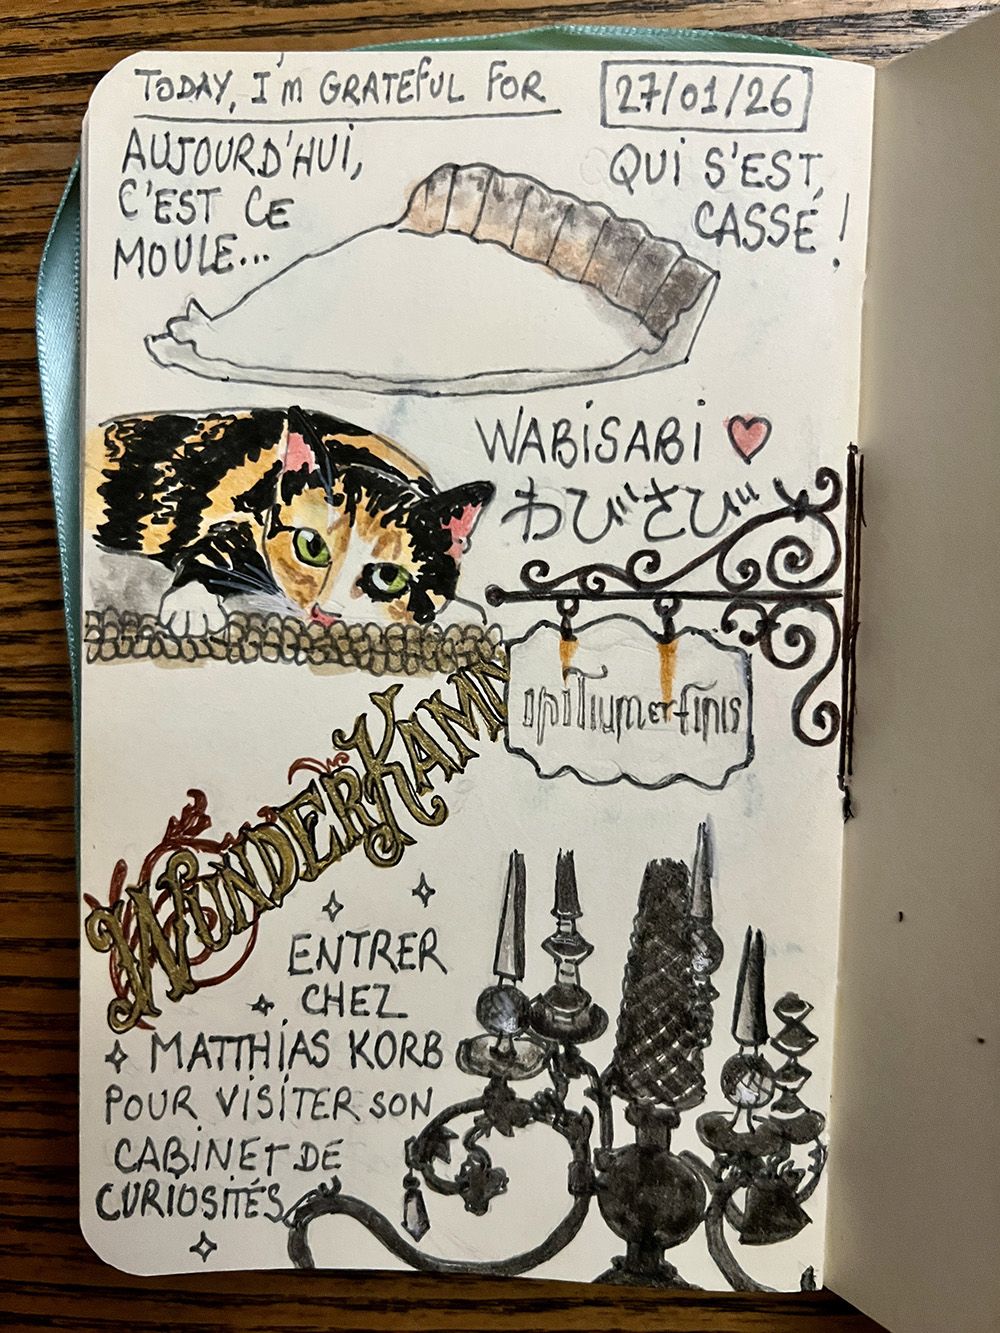 TODAY, I'm GRATEFUL FOR
27/01/26
AUJOURD'HUI,
C'EST CE
MOULE...
QUI S'EST
CASSÉ !
WABISABI
わびさび
initium et finis
WUNDERKAMM
ENTRER
CHEZ
MATTHIAS KORB
POUR VISITER SON
CABINET DE
CURIOSITÉS